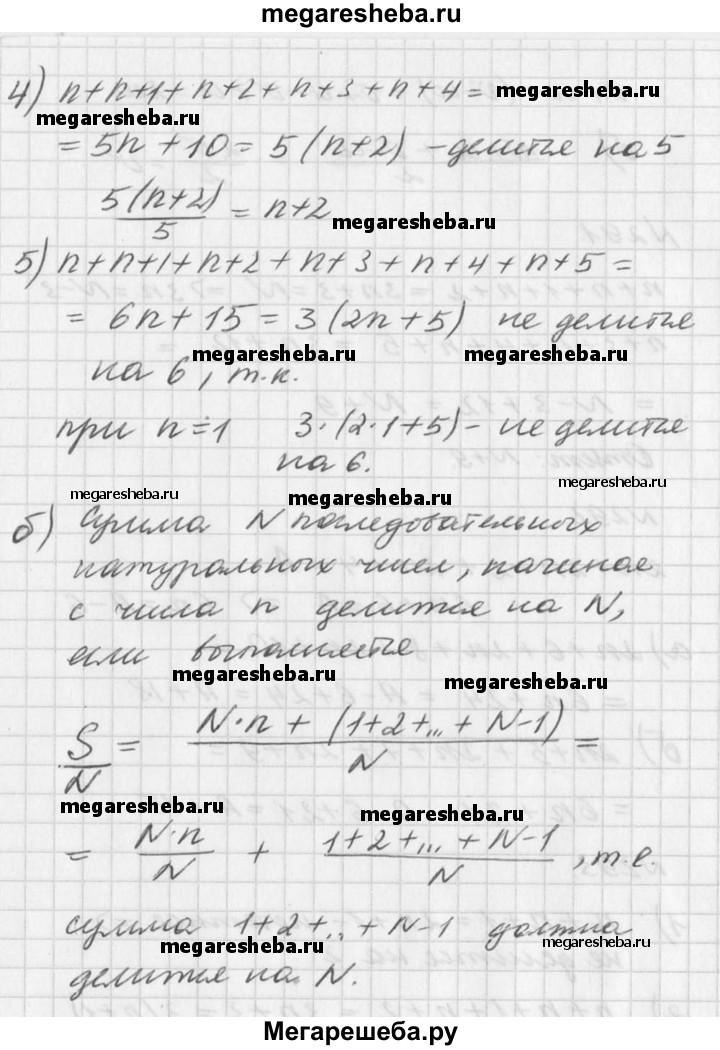 megaresheba.ru
4) n+n+1+n+2+n+3+n+4= megaresheba.ru
megaresheba.ru
= 5n+10 = 5(n+2) - делится на 5
5(n+2)/5 = n+2
megaresheba.ru
5) n+n+1+n+2+n+3+n+4+n+5=
= 6n+15 = 3(2n+5) не делится
megaresheba.ru megaresheba.ru
на 6, т.к.
при n=1 3·(2·1+5) - не делится
на 6.
megaresheba.ru megaresheba.ru megaresheba.ru
б) Сумма N последовательных
натуральных чисел, начиная
с числа n делится на N,
если выполняется
megaresheba.ru megaresheba.ru
S/N = N·n + (1+2+...+N-1)/N =
megaresheba.ru megaresheba.ru
= N·n/N + 1+2+...+N-1/N, т.е.
сумма 1+2+...+N-1 должна
megaresheba.ru megaresheba.ru megaresheba.ru
делится на N.
Мегарешеба.ру